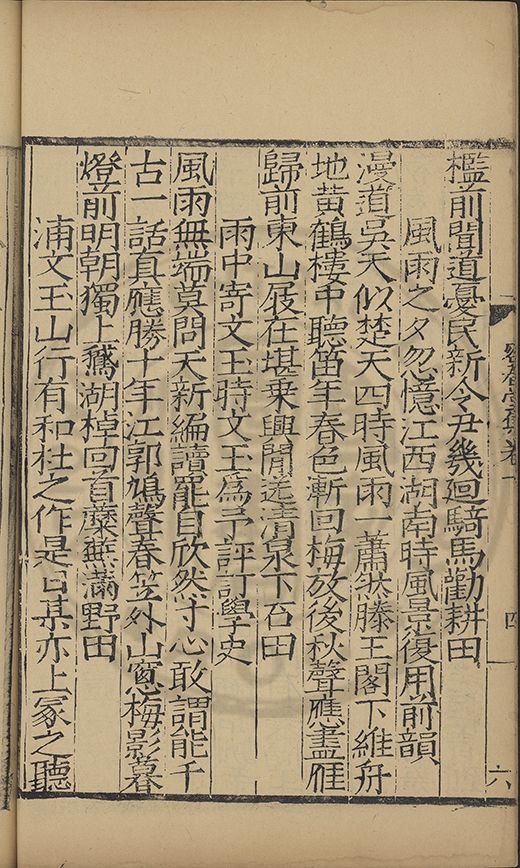 檻前聞道憂民新令尹幾廻騎馬勸耕田
風雨之夕忽憶江西湖南時風景復用前韻
漫道吳天似楚天四時風雨一蕭然滕王閣下維舟
地黄鶴樓中聽笛年春色漸回梅放後秋聲應盡雁
歸前東山屐在堪乗興閒送清泉下石田
雨中寄文玉時文玉為予評訂學史
風雨無端莫問天新編讀罷自欣然寸心敢謂能千
古一話真應勝十年江郭鳩聲春笠外山窻梅影暮
燈前明朝獨上鵞湖棹回首蘼蕪滿野田
浦文玉山行有和杜之作是日某亦上冢之聽
容春堂集卷一
四
六